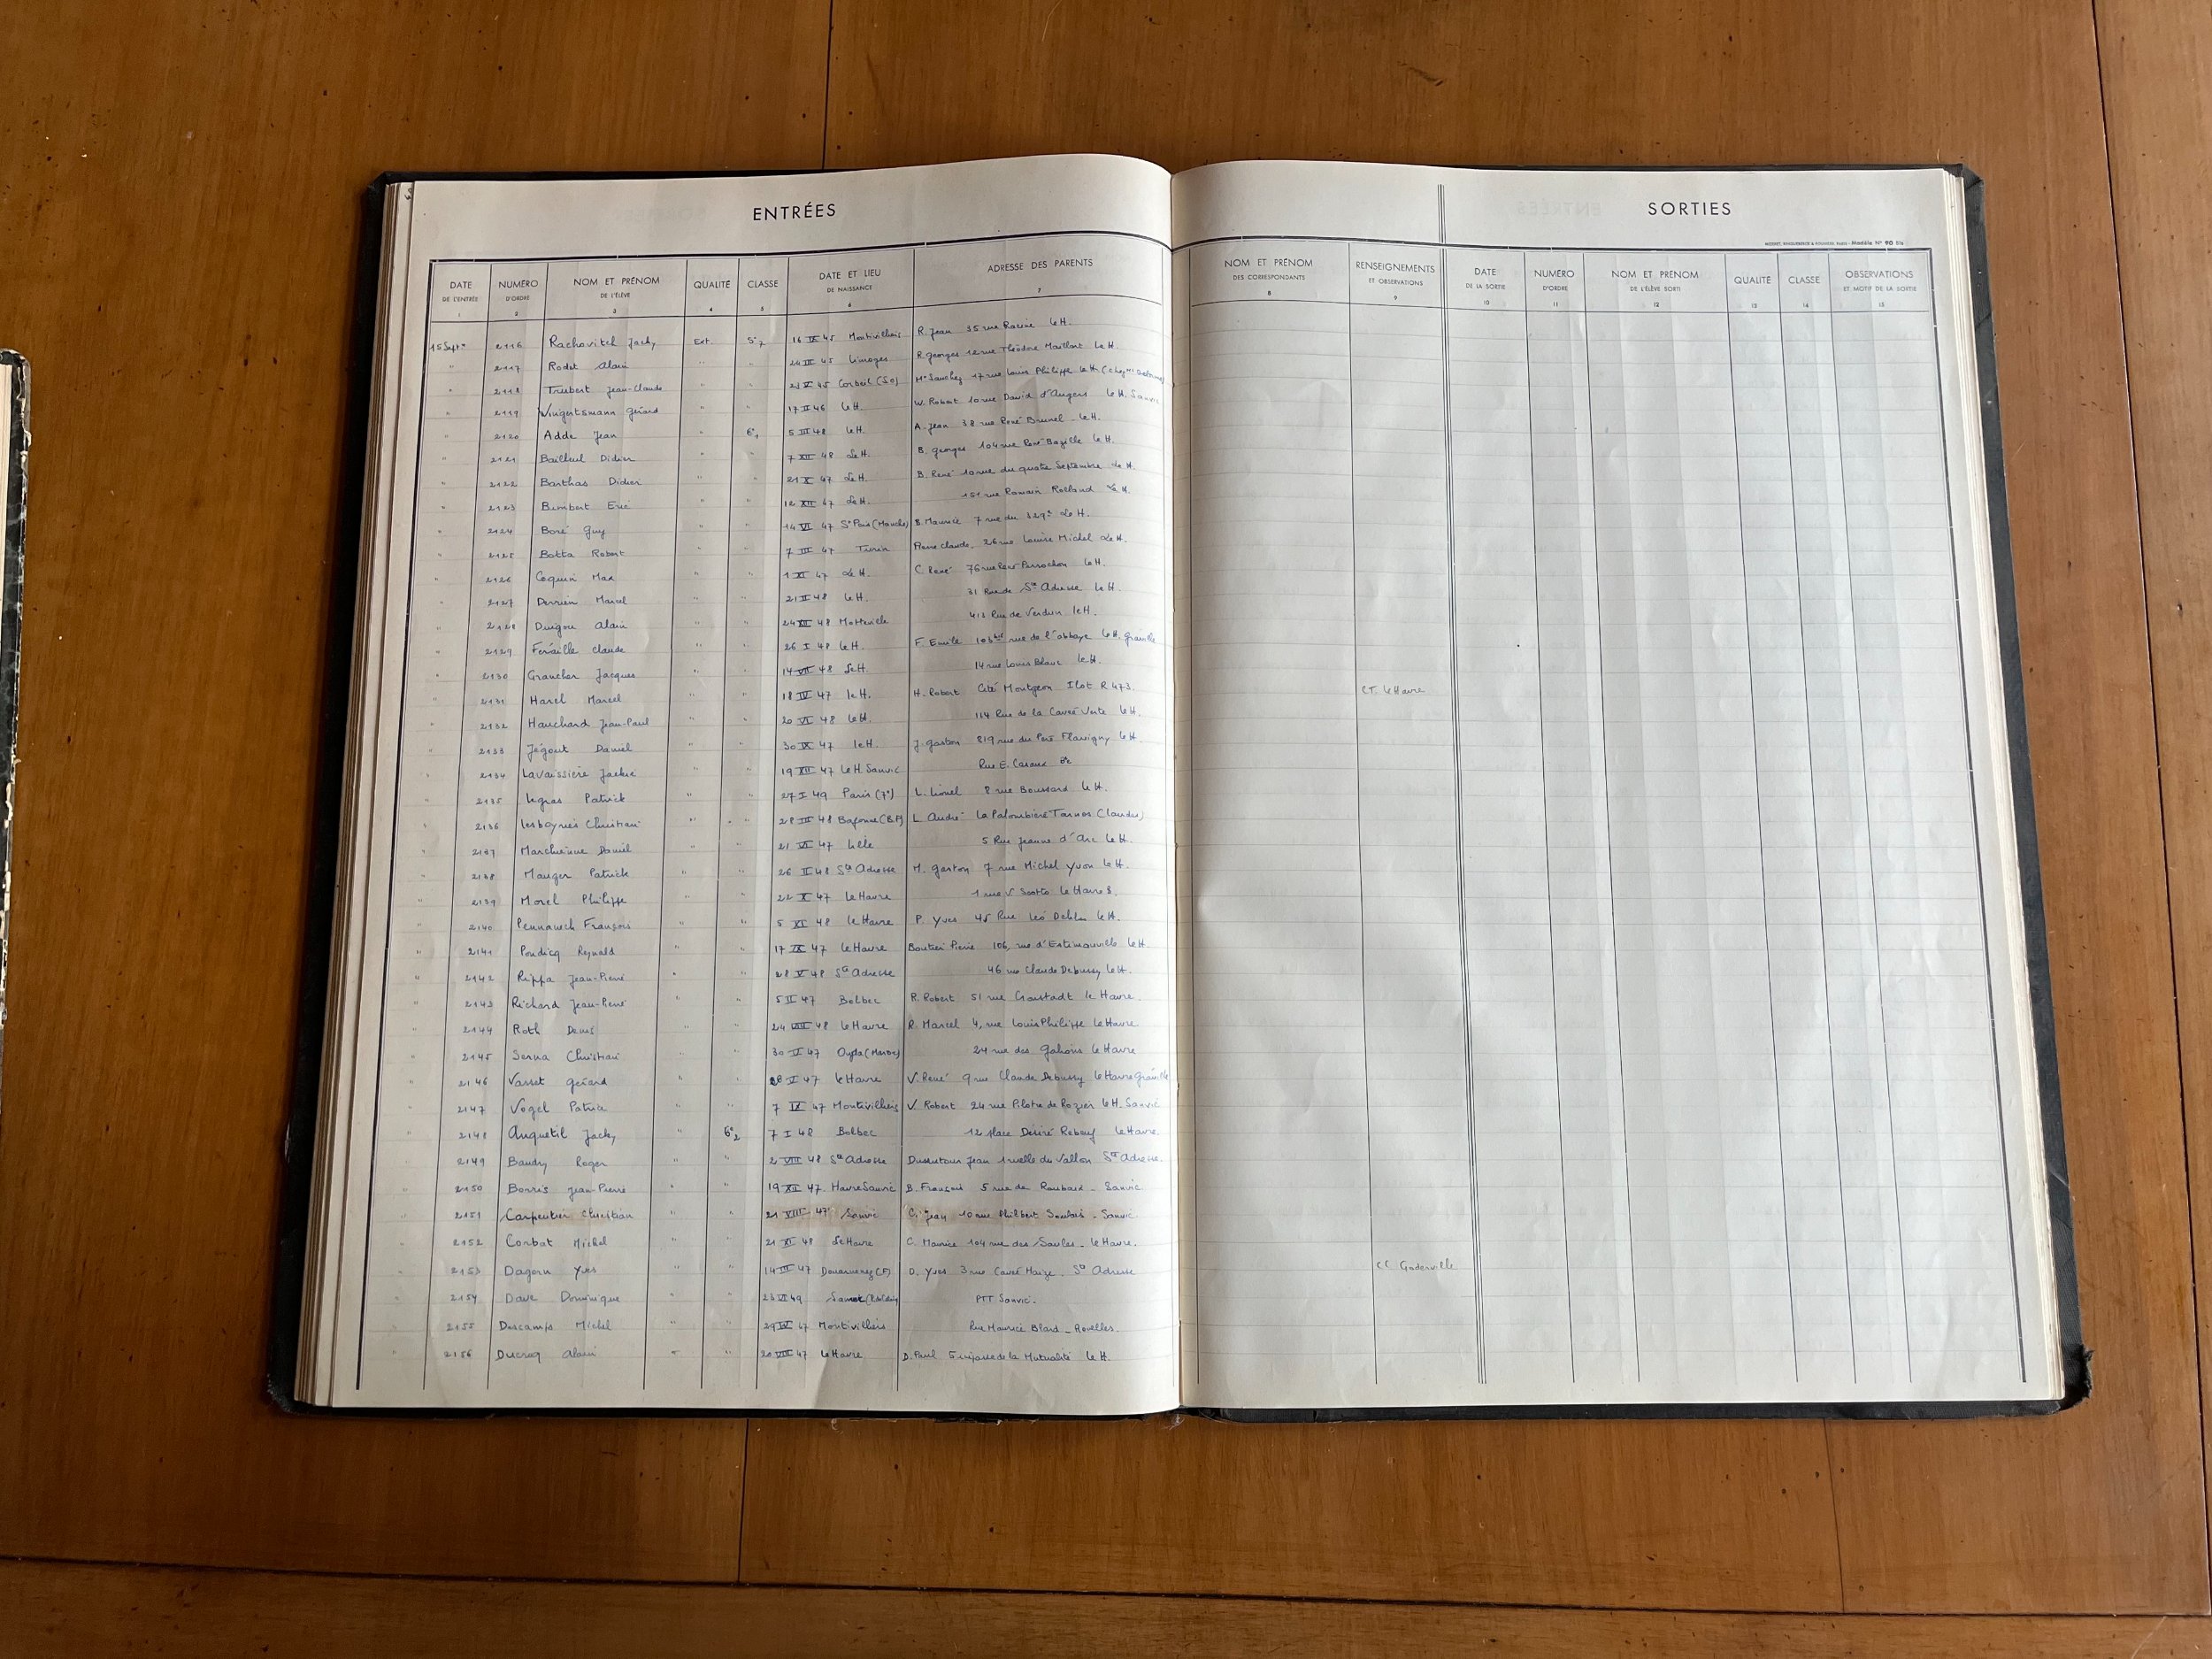 ENTRÉES
DATE DE L'ENTRÉE 1 NUMÉRO D'ORDRE 2 NOM ET PRÉNOM DE L'ÉLÈVE 3 QUALITÉ 4 CLASSE 5 DATE ET LIEU DE NAISSANCE 6 ADRESSE DES PARENTS 7
15 Sept. 2116 Rachovitch Jacky Ext. 5e7 16 IX 45 Montivilliers R. Jean 35 rue Racine le H.
" 2117 Rodet Alain " " 24 III 45 Limoges R. Georges 12 rue Théodore Maillart le H.
" 2118 Trubert Jean-Claude " " 21 V 45 Corbeil (SO) Me Sanchez 17 rue Louis Philippe le H.
" 2119 Wingertsmann Gérard " " 17 II 46 le H. W. Robert 10 rue David d'Angers le H. Sanvic
" 2120 Adde Jean " 6e1 5 III 48 le H. A. Jean 38 rue René Brunel le H.
" 2121 Bailleul Didier " " 7 XII 48 Le H. B. Georges 104 rue René Bazille le H.
" 2122 Barthas Didier " " 21 X 47 Le H. B. René 10 rue du quatre Septembre Le H.
" 2123 Bimbert Eric " " 12 XII 47 Le H. 151 rue Romain Rolland Le H.
" 2124 Boré Guy " " 14 VI 47 St Pois (Manche) B. Maurice 7 rue du 329e Le H.
" 2125 Botta Robert " " 7 III 47 Turin Pierre Claude, 26 rue Louise Michel Le H.
" 2126 Coquin Max " " 1 XI 47 Le H. C. René 76 rue René Perrochon le H.
" 2127 Derrien Marcel " " 21 II 48 le H. 31 Rue de Ste Adresse le H.
" 2128 Duigou Alain " " 24 XII 48 Motteville 413 Rue de Verdun le H.
" 2129 Feraille Claude " " 26 I 48 le H. F. Emile 106 bis rue de l'abbaye le H. Graville
" 2130 Grancher Jacques " " 14 VII 48 Le H. 14 rue Louis Blanc le H.
" 2131 Harel Marcel " " 18 IV 47 le H. H. Robert Cité Montgeon Ilot R 473.
" 2132 Hauchard Jean-Paul " " 20 VI 48 le H. 114 Rue de la Cavée Verte le H.
" 2133 Jégout Daniel " " 30 IX 47 le H. J. Gaston 219 rue du Père Flavigny le H.
" 2134 Lavaissière Jackie " " 19 XII 47 Le H. Sanvic Rue E. Caraux
" 2135 Legras Patrick " " 27 I 49 Paris (7e) L. Lionel 8 rue Boussard le H.
" 2136 Lesboyries Christian " " 28 III 48 Bayonne (B.P) L. André La Palombière Tarnos (Landes)
" 2137 Marchienne Daniel " " 21 VI 47 Lille 5 Rue Jeanne d'Arc le H.
" 2138 Mauger Patrick " " 26 II 48 Ste Adresse M. Gaston 7 rue Michel Yvon le H.
" 2139 Morel Philippe " " 22 X 47 Le Havre 1 rue V. Scotto Le Havre 8.
" 2140 Pennanech François " " 5 XI 48 le Havre P. Yves 45 Rue Léo Delibes le H.
" 2141 Poudicq Reynald " " 17 IX 47 le Havre Boutier Pierre 106, rue d'Estimauville le H
" 2142 Rippa Jean-Pierre " " 28 V 48 Ste Adresse 46 rue Claude Debussy le H.
" 2143 Richard Jean-René " " 5 II 47 Bolbec R. Robert 51 rue Cronstadt le Havre.
" 2144 Roth Denis " " 24 VIII 48 le Havre R. Marcel 4, rue Louis Philippe le Havre
" 2145 Serna Christian " " 30 47 Oujda (Maroc) 24 rue des Galions le Havre
" 2146 Vasset Gérard " " 28 47 le Havre V. René 9 rue Claude Debussy le Havre Graville
" 2147 Vogel Patrice " " 7 IX 47 Montivilliers V. Robert 24 rue Pilatre de Rozier le H. Sanvic
" 2148 Anquetil Jacky " 6e2 7 I 48 Bolbec 12 place Désiré Rebeuf le Havre.
" 2149 Baudry Roger " " 2 VIII 48 Ste Adresse Dussutour Jean 1 ruelle du Vallon Ste Adresse.
" 2150 Borris Jean-Pierre " " 19 XII 47. Havre Sanvic B. François 5 rue de Roubaix - Sanvic
" 2151 Carpentier Christian " " 21 VIII 47 Sanvic C. Jean 10 rue Philbert - Sanvic
" 2152 Corbat Michel " " 21 XI 48 Le Havre C. Maurice 104 rue des Saules - le Havre.
" 2153 Dagorn Yves " " 14 III 47 Douarnenez (F) D. Yves 3 rue Cavée Haize. Ste Adresse
" 2154 Dave Dominique " " 23 VI 49 PTT Sanvic.
" 2155 Descamps Michel " " 29 IV 47 Montivilliers Rue Maurice Blard - Rouelles.
" 2156 Ducrocq Alain " " 20 VIII 47 le Havre D. Paul 5 impasse de la Mutualité le H.
SORTIES
Modèle N° 90 Bis
NOM ET PRÉNOM DES CORRESPONDANTS 8 RENSEIGNEMENTS ET OBSERVATIONS 9 DATE DE LA SORTIE 10 NUMÉRO D'ORDRE 11 NOM ET PRÉNOM DE L'ÉLÈVE SORTI 12 QUALITÉ 13 CLASSE 14 OBSERVATIONS ET MOTIF DE LA SORTIE 15
CT. Le Havre
CC Goderville